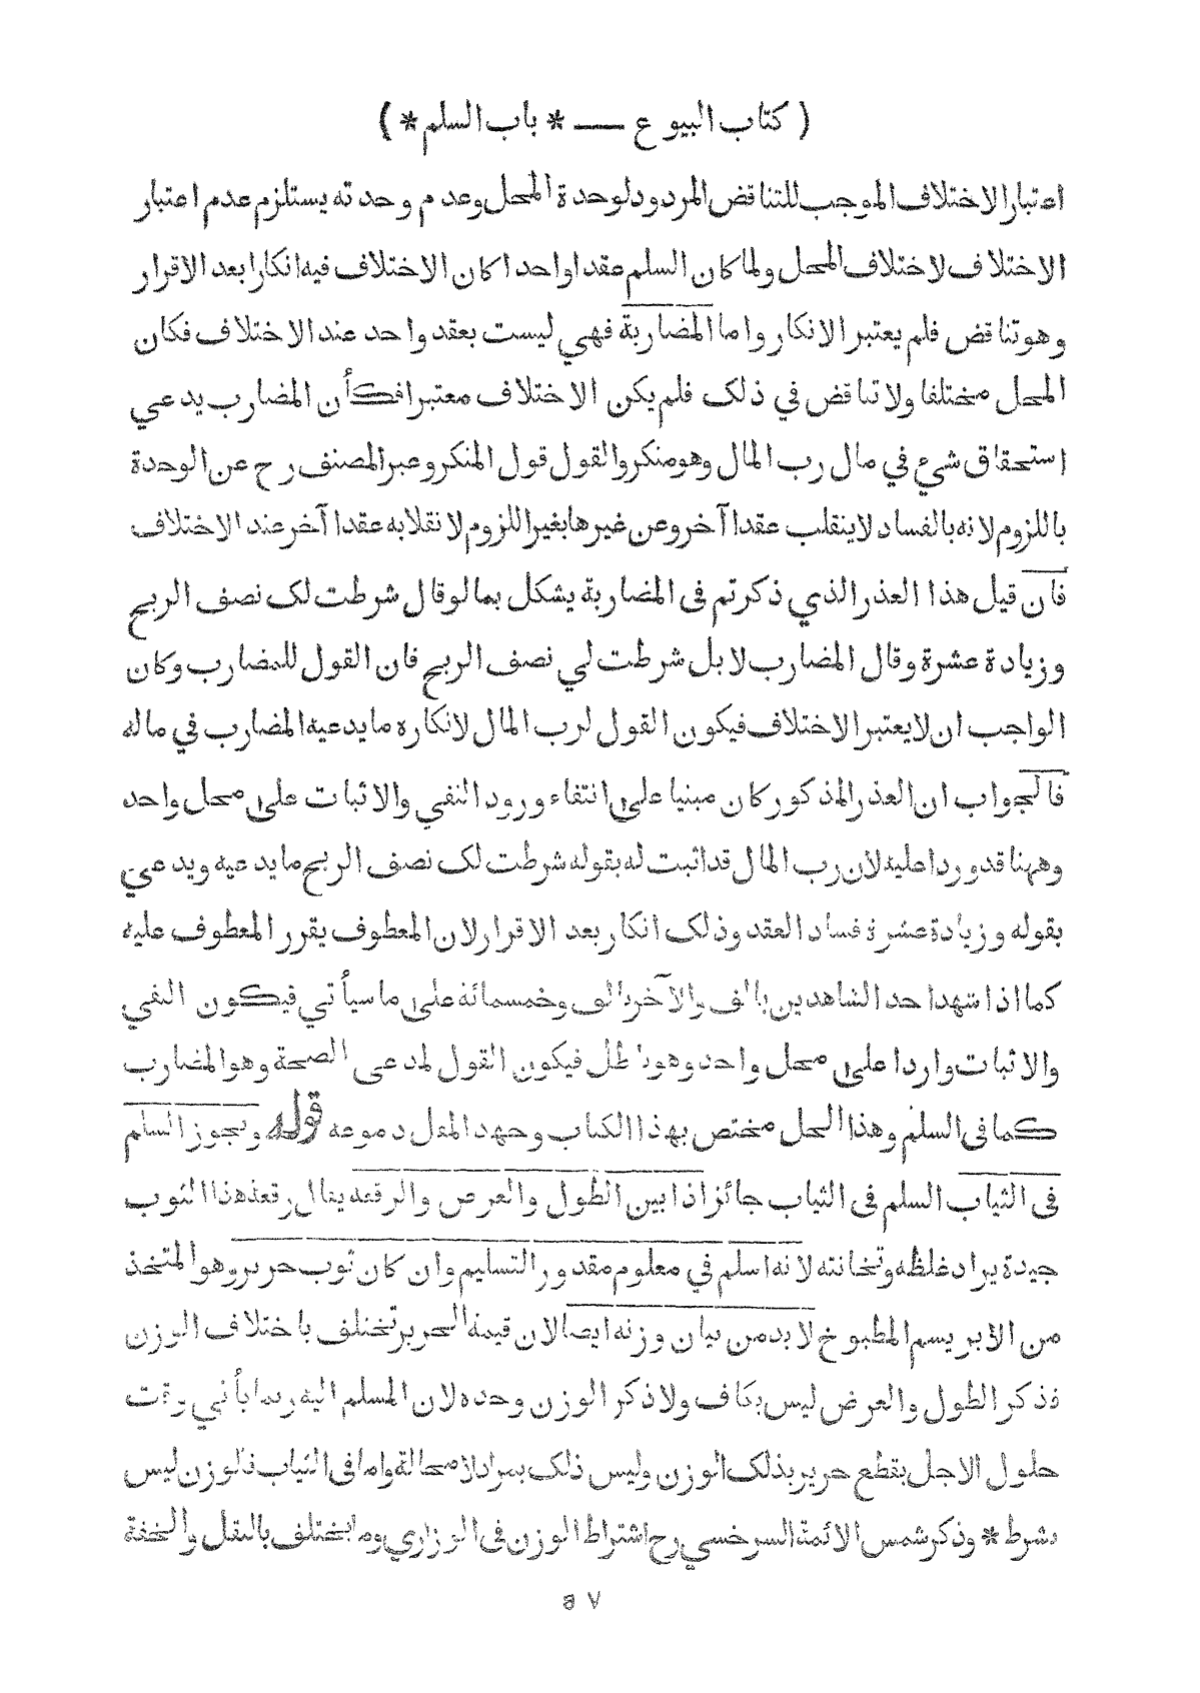 ( كتاب البيوع — * باب السلم * )
اعتبار الاختلاف الموجب للتناقض المردود لوحدة المحل وعدم وحدته يستلزم عدم اعتبار
الاختلاف لاختلاف المحل ولما كان السلم عقدا واحدا كان الاختلاف فيه انكارا بعد الاقرار
وهو تناقض فلم يعتبر الانكار واما المضاربة فهي ليست بعقد واحد عند الاختلاف فكان
المحل مختلفا ولا تناقض في ذلك فلم يكن الاختلاف معتبرا فكأن المضارب يدعي
استحقاق شيء في مال رب المال وهو منكر والقول قول المنكر وعبر المصنف رح عن الوحدة
باللزوم لانه بالفساد لا ينقلب عقدا آخر وعن غيرها بغير اللزوم لانقلابه عقدا آخر عند الاختلاف
فان قيل هذا العذر الذي ذكرتم فى المضاربة يشكل بما لو قال شرطت لك نصف الربح
وزيادة عشرة وقال المضارب لا بل شرطت لي نصف الربح فان القول للمضارب وكان
الواجب ان لا يعتبر الاختلاف فيكون القول لرب المال لانكاره ما يدعيه المضارب في ماله
فالجواب ان العذر المذكور كان مبنيا على انتفاء ورود النفي والاثبات على محل واحد
وههنا قد وردا عليه لان رب المال قد اثبت له بقوله شرطت لك نصف الربح ما يدعيه ويدعي
بقوله وزيادة عشرة فساد العقد وذلك انكار بعد الاقرار لان المعطوف يقرر المعطوف عليه
كما اذا شهد احد الشاهدين بالف والآخر بالف وخمسمائة على ما سيأتي فيكون النفي
والاثبات واردا على محل واحد وهو باطل فيكون القول لمدعى الصحة وهو المضارب
كما فى السلم وهذا الحل مختص بهذا الكتاب وجهد المقل دموعه قوله ويجوز السلم
فى الثياب السلم فى الثياب جائز اذا بين الطول والعرض والرقعة يقال رقعة هذا الثوب
جيدة يراد غلظه وثخانته لانه اسلم في معلوم مقدور التسليم وان كان ثوب حرير وهو المتخذ
من الابريسم المطبوخ لا بد من بيان وزنه ايضا لان قيمة الحرير تختلف باختلاف الوزن
فذكر الطول والعرض ليس بكاف ولا ذكر الوزن وحده لان المسلم اليه ربما يأتي وقت
حلول الاجل بقطع حرير بذلك الوزن وليس ذلك بمراد لا محالة واما فى الثياب فالوزن ليس
بشرط * وذكر شمس الائمة السرخسي رح اشتراط الوزن فى الوذاري وما يختلف بالثقل والخفة